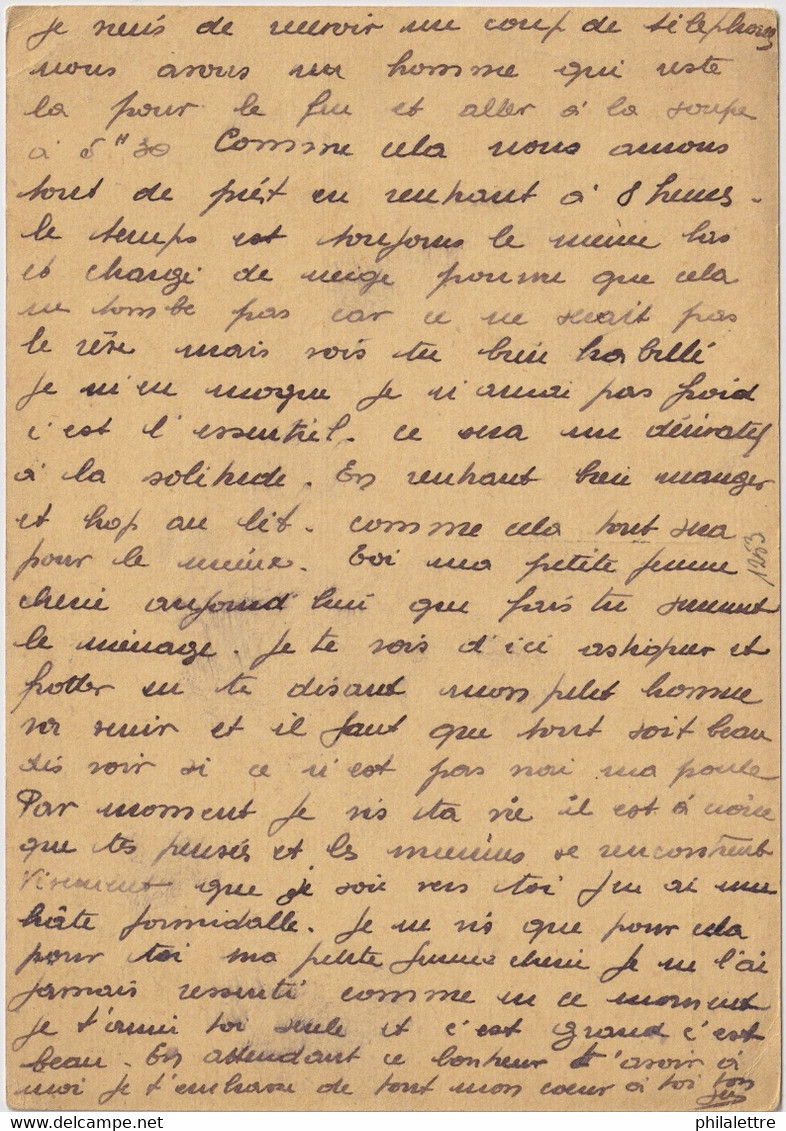 Je viens de recevoir un coup de téléphone
nous avons un homme qui reste
la pour le feu et aller à la soupe
à 5 H 30 Comme cela nous aurons
tout de prêt en rentrant à 8 heures.
le temps est toujours le même bas
et chargé de neige pourvu que cela
ne tombe pas car ce ne serait pas
le rêve mais vois tu bien habillé
Je m'en moque je n'aurai pas froid
c'est l'essentiel. ce sera un dérivatif
à la solitude. En rentrant bien manger
et hop au lit. comme cela tout sera
pour le mieux. Toi ma petite femme
cherie aujourd'hui que fais tu surement
le ménage. Je te vois d'ici astiquer et
frotter en te disant mon petit homme
va venir et il faut que tout soit beau
dis voir si ce n'est pas vrai ma poule
Par moment je vis ta vie il est à croire
que tes pensés et les miennes se rencontrent
Vivement que je soie vers toi j'en ai une
hâte formidalle. Je ne vis que pour cela
pour toi ma petite femme cherie Je ne l'ai
jamais ressenti comme en ce moment
je t'aime toi seule et c'est grand c'est
beau. En attendant ce bonheur t'avoir à
moi je t'embrasse de tout mon coeur à toi ton
1253
philalettre